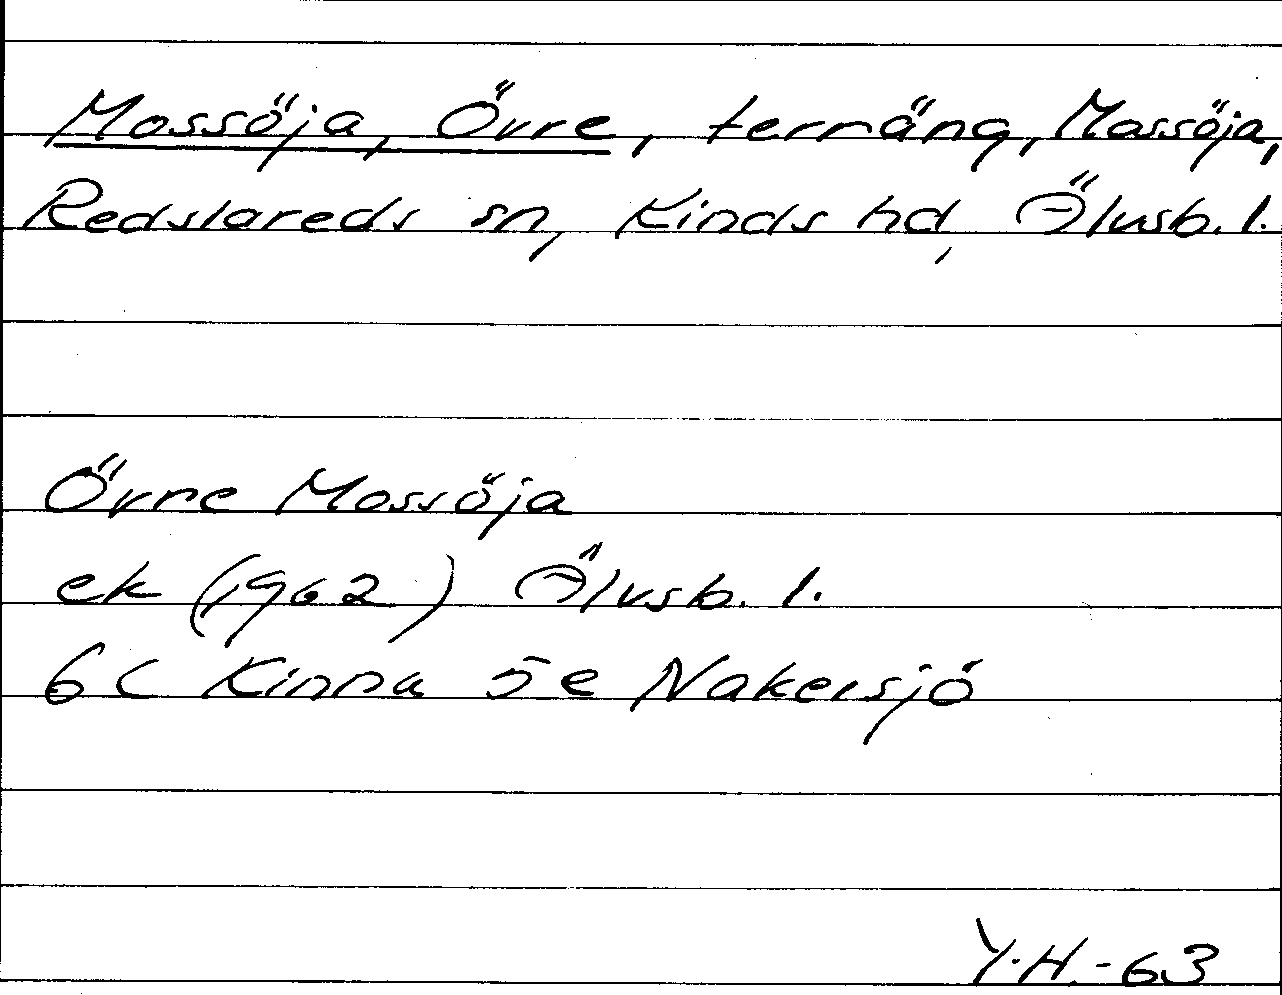 Mossöja, Övre, terräng, Mossöja,
Redslareds sn, Kinds hd, Älvsb. l.
Övre Mossöja
ek (1962) Älvsb. l.
6C Kinna 5e Nakersjö
Y.H.-63